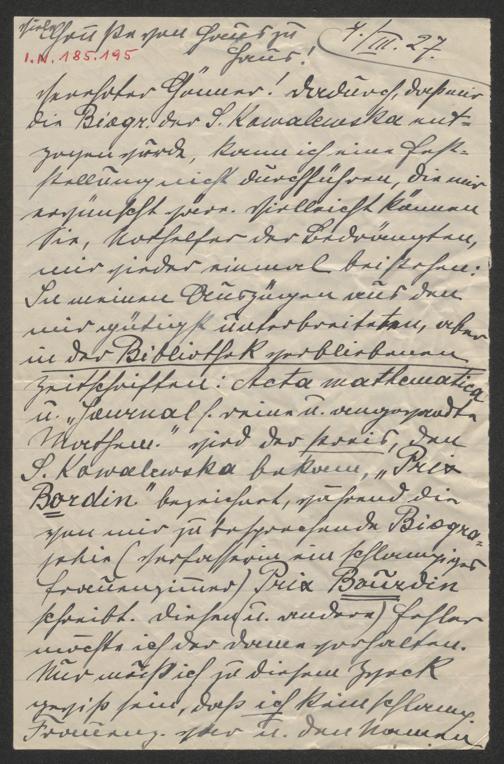 Viele Grüße von Haus zu
Haus!
4./III. 27.
I.N. 185.195
Verehrter Gönner! Dadurch, daß mir
die Biogr. der S. Kowalewska ent-
zogen wurde, kann ich eine Fest-
stellung nicht durchführen, die mir
erwünscht wäre. Vielleicht können
Sie, Nothelfer der Bedrängten,
mir wieder einmal beistehen:
In meinen Auszügen aus den
mir gütigst unterbreiteten, aber
in der Bibliothek verbliebenen
Zeitschriften: Acta mathematica
u. „Journal f. reine u. angewandte
Mathem." wird der Preis, den
S. Kowalewska bekam, „Prix
Bordin" bezeichnet, während die
von mir zu besprechende Biogra-
phie (Verfasserin ein schlampiges
Frauenzimmer) Prix Bourdin
schreibt. Diesen (u. andere) Fehler
möchte ich der Dame vorhalten.
Nur möcht ich zu diesem Zweck
gewiß sein, daß ich kein schlamp.
Frauenz. war u. den Namen